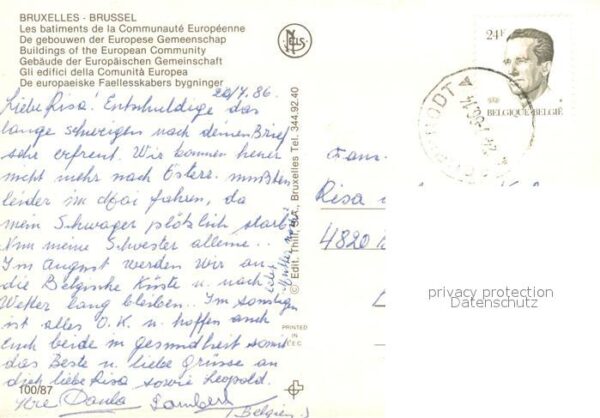 BRUXELLES - BRUSSEL
Les batiments de la Communauté Européenne
De gebouwen der Europese Gemeenschap
Buildings of the European Community
Gebäude der Europäischen Gemeinschaft
Gli edifici della Comunità Europea
De europaeiske Faellesskabers bygninger
20/7.86.
Liebe Risa! Entschuldige das
lange schweigen nach deinen Brief
sehr erfreut. Wir können heuer
nicht mehr nach Österr. mußten
leider im fahren, da
mein Schwager plötzlich starb
Nun meine Schwester alleine..
Im August werden wir an
die Belgische Küste u. nach
Wetter lang bleiben.. Im sonstigen
ist alles O.K. u. hoffen auch
euch beide in gesundheit somit
das Beste u. liebe Grüsse an
dich liebe Risa sowie Leopold.
Ihre Paula
Belgien
100/87
NELS
© Edit. Thill, S.A., Bruxelles Tel. 344.92.40
PRINTED
IN
E.E.C.
24F
BELGIQUE-BELGIË
Fam.
Risa
4820
privacy protection
Datenschutz